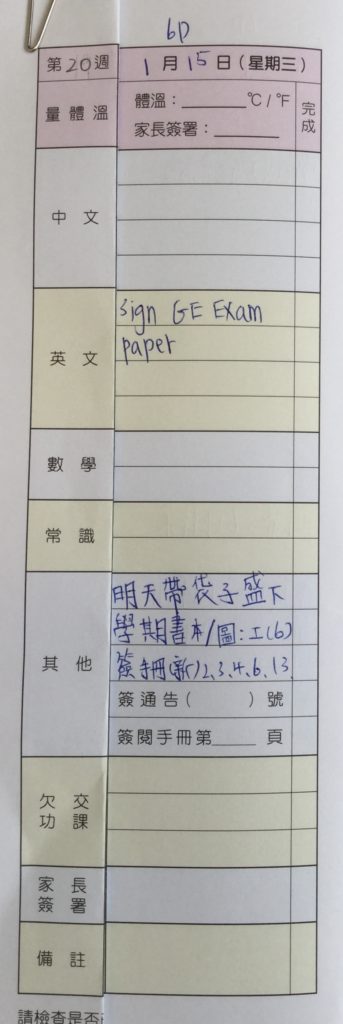 6D
第20週 1月15日(星期三)
量體溫 體溫:______°C/°F
家長簽署:______
完成
中文
英文
sign GE Exam
paper
數學
常識
其他
明天帶袋子盛下
學期書本/圖:工(6)
簽手冊(新)2,3,4,6,13
簽通告( )號
簽閱手冊第____頁
欠交
功課
家長
簽署
備註
請檢查是否